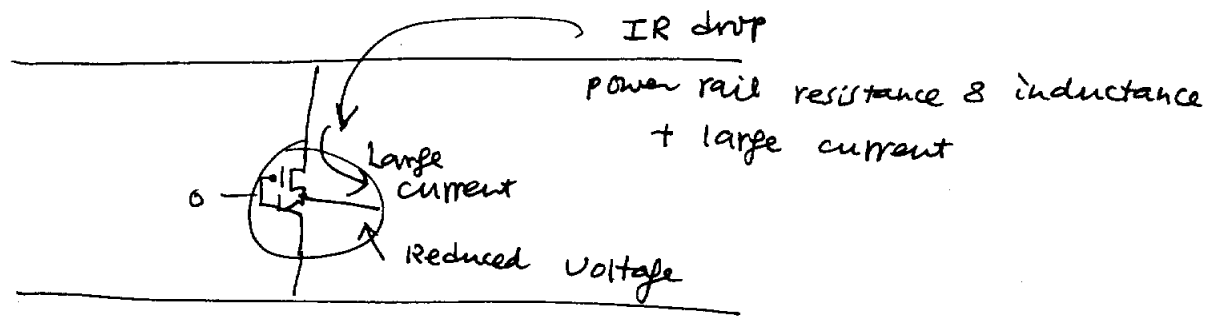 IR drop
power rail resistance & inductance
+ large current
Large
current
o
Reduced voltage